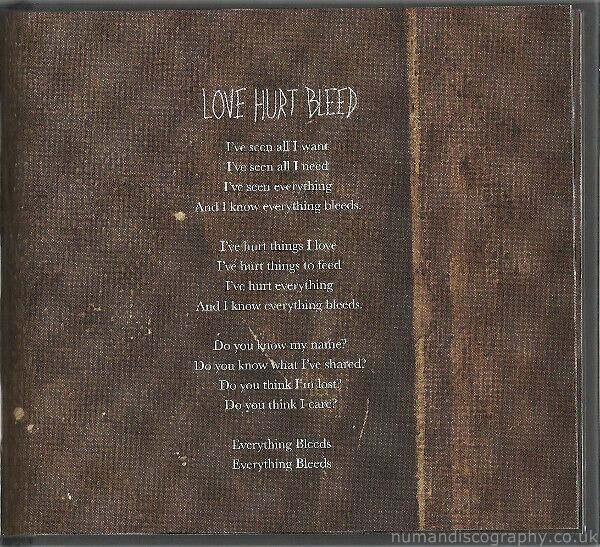 LOVE HURT BLEED
I've seen all I want
I've seen all I need
I've seen everything
And I know everything bleeds.
I've hurt things I love
I've hurt things to feed
I've hurt everything
And I know everything bleeds.
Do you know my name?
Do you know what I've shared?
Do you think I'm lost?
Do you think I care?
Everything Bleeds
Everything Bleeds
numandiscography.co.uk